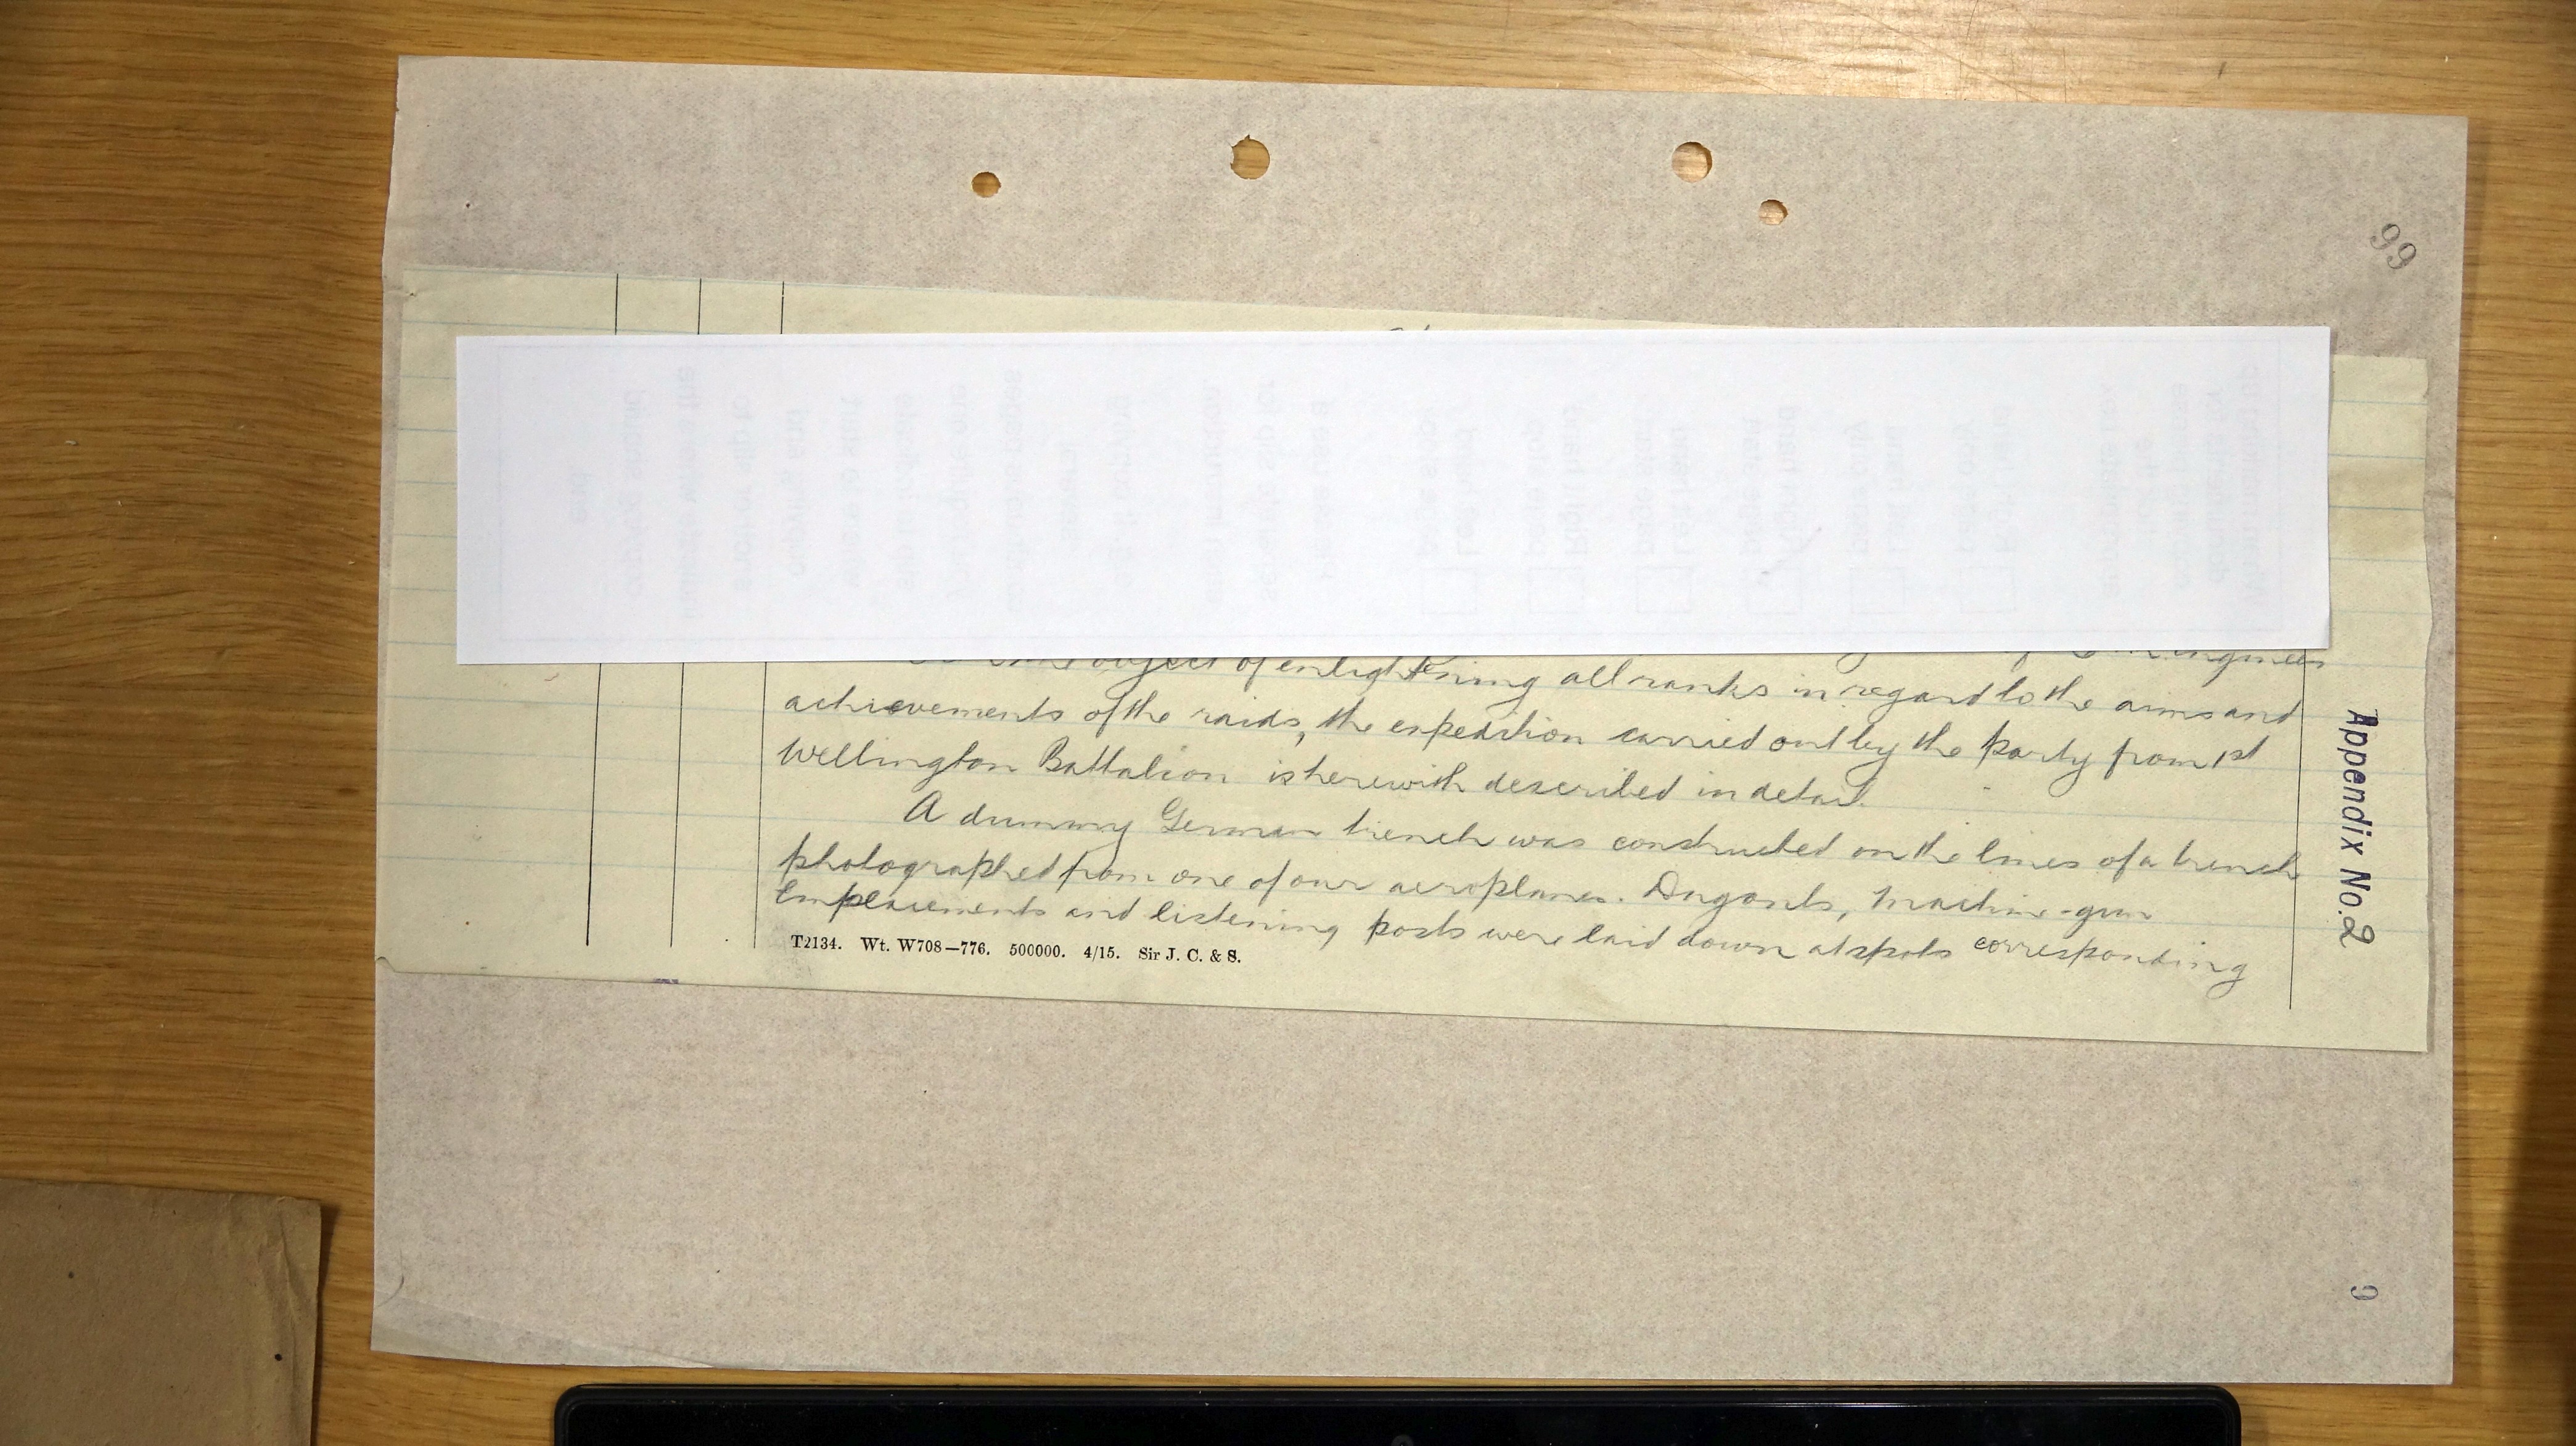 99
object of enlightening all ranks in regard to the aims and
achievements of the raids, the expedition carried out by the party from 1st
Wellington Battalion is herewith described in detail.
A dummy German trench was constructed on the lines of a trench
photographed from one of our aeroplanes. Dugouts, Machine-gun
Emplacements and listening posts were laid down at spots corresponding
T2134. Wt. W708—776. 500000. 4/15. Sir J. C. & S.
Appendix No. 2
9